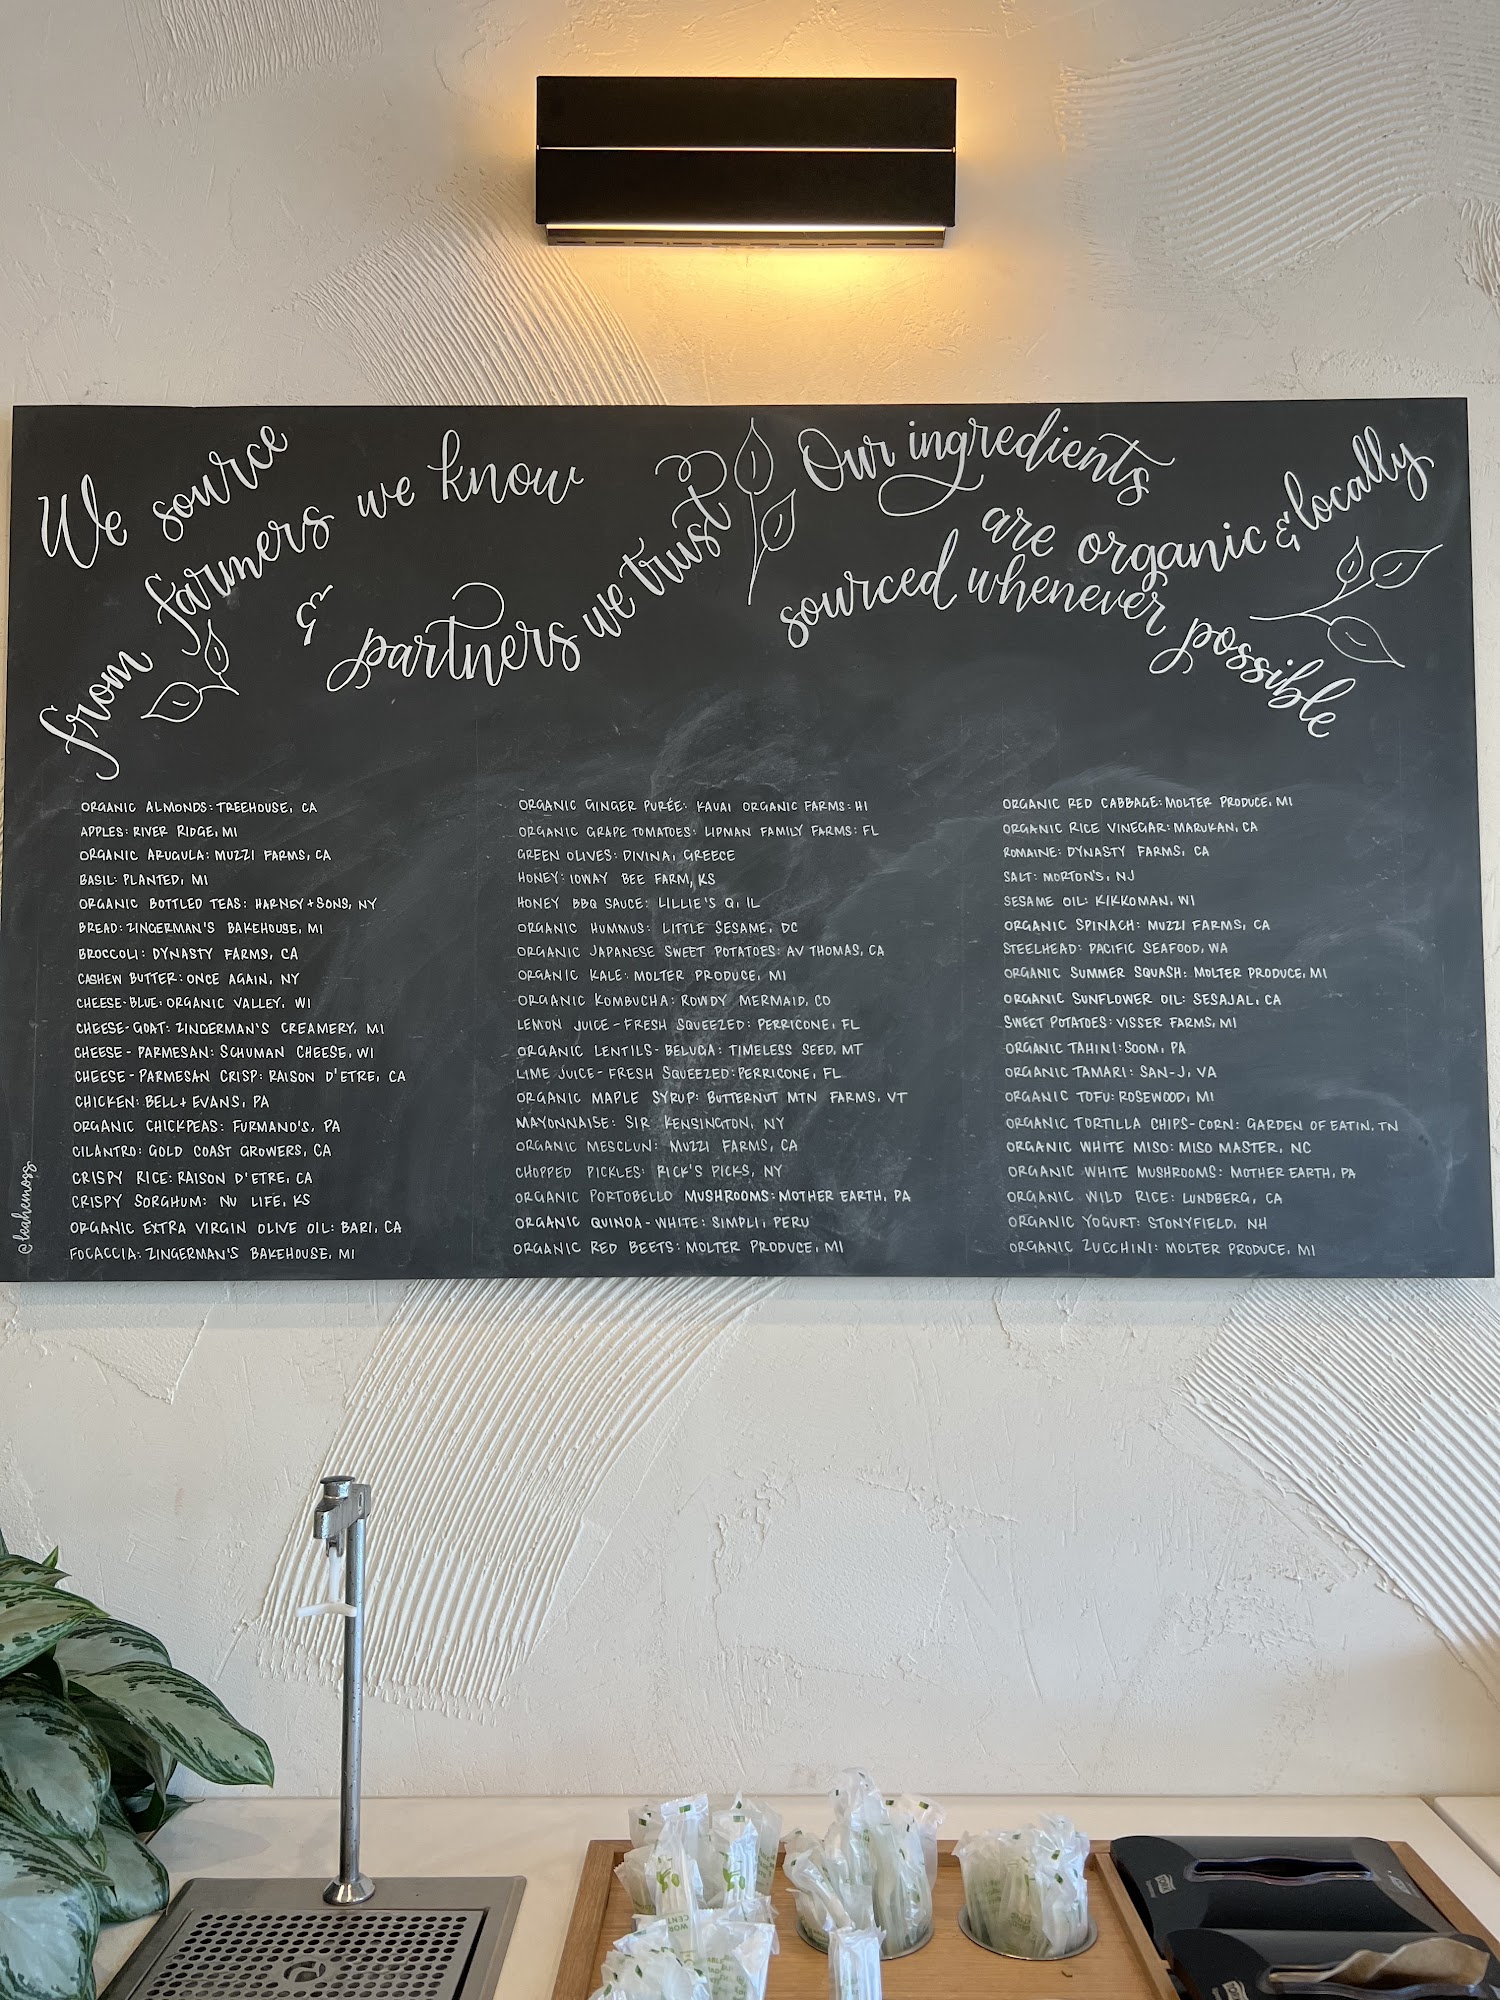 We source
from farmers we know
&
partners we trust
Our ingredients
are organic & locally
sourced whenever possible
ORGANIC ALMONDS: TREEHOUSE, CA
APPLES: RIVER RIDGE, MI
ORGANIC ARUGULA: MUZZI FARMS, CA
BASIL: PLANTED, MI
ORGANIC BOTTLED TEAS: HARNEY + SONS, NY
BREAD: ZINGERMAN'S BAKEHOUSE, MI
BROCCOLI: DYNASTY FARMS, CA
CASHEW BUTTER: ONCE AGAIN, NY
CHEESE-BLUE: ORGANIC VALLEY, WI
CHEESE-GOAT: ZINGERMAN'S CREAMERY, MI
CHEESE-PARMESAN: SCHUMAN CHEESE, WI
CHEESE-PARMESAN CRISP: RAISON D'ETRE, CA
CHICKEN: BELL + EVANS, PA
ORGANIC CHICKPEAS: FURMANO'S, PA
CILANTRO: GOLD COAST GROWERS, CA
CRISPY RICE: RAISON D'ETRE, CA
CRISPY SORGHUM: NU LIFE, KS
ORGANIC EXTRA VIRGIN OLIVE OIL: BARI, CA
FOCACCIA: ZINGERMAN'S BAKEHOUSE, MI
ORGANIC GINGER PURÉE: KAUAI ORGANIC FARMS: HI
ORGANIC GRAPE TOMATOES: LIPMAN FAMILY FARMS: FL
GREEN OLIVES: DIVINA, GREECE
HONEY: IOWAY BEE FARM, KS
HONEY BBQ SAUCE: LILLIE'S Q, IL
ORGANIC HUMMUS: LITTLE SESAME, DC
ORGANIC JAPANESE SWEET POTATOES: AV THOMAS, CA
ORGANIC KALE: MOLTER PRODUCE, MI
ORGANIC KOMBUCHA: ROWDY MERMAID, CO
LEMON JUICE-FRESH SQUEEZED: PERRICONE, FL
ORGANIC LENTILS-BELUGA: TIMELESS SEED, MT
LIME JUICE-FRESH SQUEEZED: PERRICONE, FL
ORGANIC MAPLE SYRUP: BUTTERNUT MTN FARMS, VT
MAYONNAISE: SIR KENSINGTON, NY
ORGANIC MESCLUN: MUZZI FARMS, CA
CHOPPED PICKLES: RICK'S PICKS, NY
ORGANIC PORTOBELLO MUSHROOMS: MOTHER EARTH, PA
ORGANIC QUINOA-WHITE: SIMPLI, PERU
ORGANIC RED BEETS: MOLTER PRODUCE, MI
ORGANIC RED CABBAGE: MOLTER PRODUCE, MI
ORGANIC RICE VINEGAR: MARUKAN, CA
ROMAINE: DYNASTY FARMS, CA
SALT: MORTON'S, NJ
SESAME OIL: KIKKOMAN, WI
ORGANIC SPINACH: MUZZI FARMS, CA
STEELHEAD: PACIFIC SEAFOOD, WA
ORGANIC SUMMER SQUASH: MOLTER PRODUCE, MI
ORGANIC SUNFLOWER OIL: SESAJAL, CA
SWEET POTATOES: VISSER FARMS, MI
ORGANIC TAHINI: SOOM, PA
ORGANIC TAMARI: SAN-J, VA
ORGANIC TOFU: ROSEWOOD, MI
ORGANIC TORTILLA CHIPS-CORN: GARDEN OF EATIN, TN
ORGANIC WHITE MISO: MISO MASTER, NC
ORGANIC WHITE MUSHROOMS: MOTHER EARTH, PA
ORGANIC WILD RICE: LUNDBERG, CA
ORGANIC YOGURT: STONYFIELD, NH
ORGANIC ZUCCHINI: MOLTER PRODUCE, MI
@leahemoss